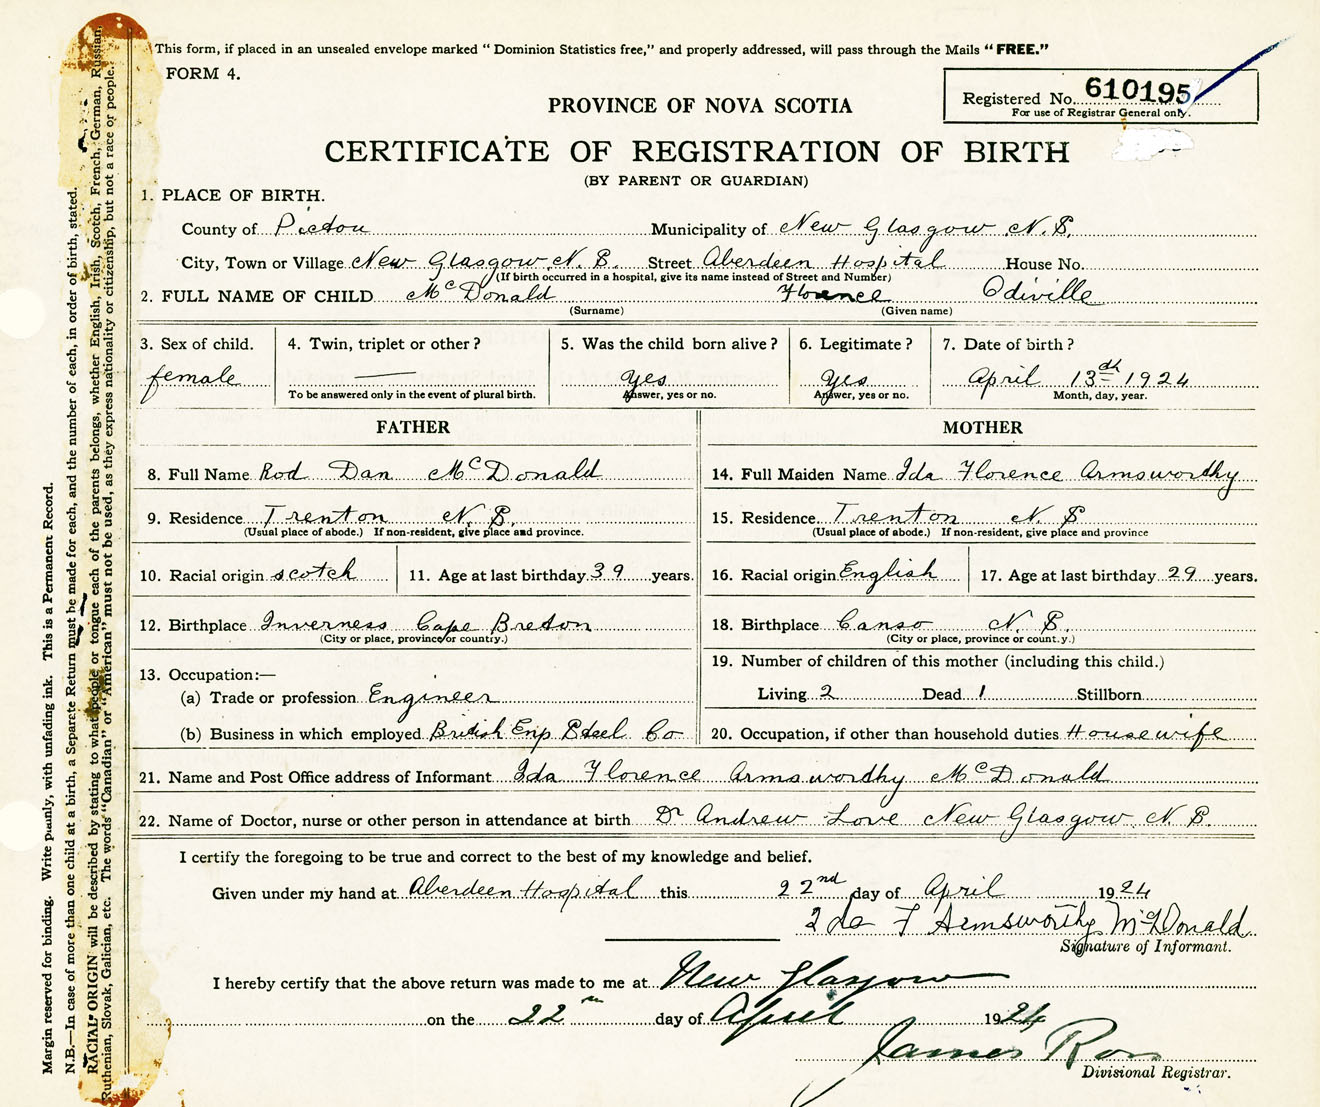 This form, if placed in an unsealed envelope marked “ Dominion Statistics free,” and properly addressed, will pass through the Mails “ FREE.”
FORM 4.
Registered No. 610195
For use of Registrar General only.
PROVINCE OF NOVA SCOTIA
CERTIFICATE OF REGISTRATION OF BIRTH
(BY PARENT OR GUARDIAN)
1. PLACE OF BIRTH.
County of Pictou Municipality of New Glasgow N. S.
City, Town or Village New Glasgow, N. S. Street Aberdeen Hospital House No.
(If birth occurred in a hospital, give its name instead of Street and Number)
2. FULL NAME OF CHILD McDonald Florence Odiville
(Surname) (Given name)
3. Sex of child. 4. Twin, triplet or other ? 5. Was the child born alive ? 6. Legitimate ? 7. Date of birth ?
female — yes yes April 13th 1924
To be answered only in the event of plural birth. Answer, yes or no. Answer, yes or no. Month, day, year.
FATHER MOTHER
8. Full Name Rod Dan McDonald 14. Full Maiden Name Ida Florence Armsworthy
9. Residence Trenton N. S. 15. Residence Trenton N. S
(Usual place of abode.) If non-resident, give place and province. (Usual place of abode.) If non-resident, give place and province
10. Racial origin scotch 11. Age at last birthday 39 years. 16. Racial origin English 17. Age at last birthday 29 years.
12. Birthplace Inverness Cape Breton 18. Birthplace Canso N. S.
(City or place, province or country.) (City or place, province or count.y.)
13. Occupation:— 19. Number of children of this mother (including this child.)
(a) Trade or profession Engineer Living 2 Dead 1 Stillborn
(b) Business in which employed British Emp Steel Co 20. Occupation, if other than household duties Housewife
21. Name and Post Office address of Informant Ida Florence Armsworthy McDonald
22. Name of Doctor, nurse or other person in attendance at birth Dr Andrew Love New Glasgow N. S.
I certify the foregoing to be true and correct to the best of my knowledge and belief.
Given under my hand at Aberdeen Hospital this 22nd day of April 1924
Ida F Armsworthy McDonald
Signature of Informant.
I hereby certify that the above return was made to me at New Glasgow
on the 22 day of April 1924
James Ross
Divisional Registrar.
Margin reserved for binding. Write plainly, with unfading ink. This is a Permanent Record.
N.B.—In case of more than one child at a birth, a Separate Return must be made for each, and the number of each, in order of birth, stated.
RACIAL ORIGIN will be described by stating to what people or tongue each of the parents belongs, whether English, Irish, Scotch, French, German, Russian,
Ruthenian, Slovak, Galician, etc. The words “Canadian” or “American” must not be used, as they express nationality or citizenship, but not a race or people.